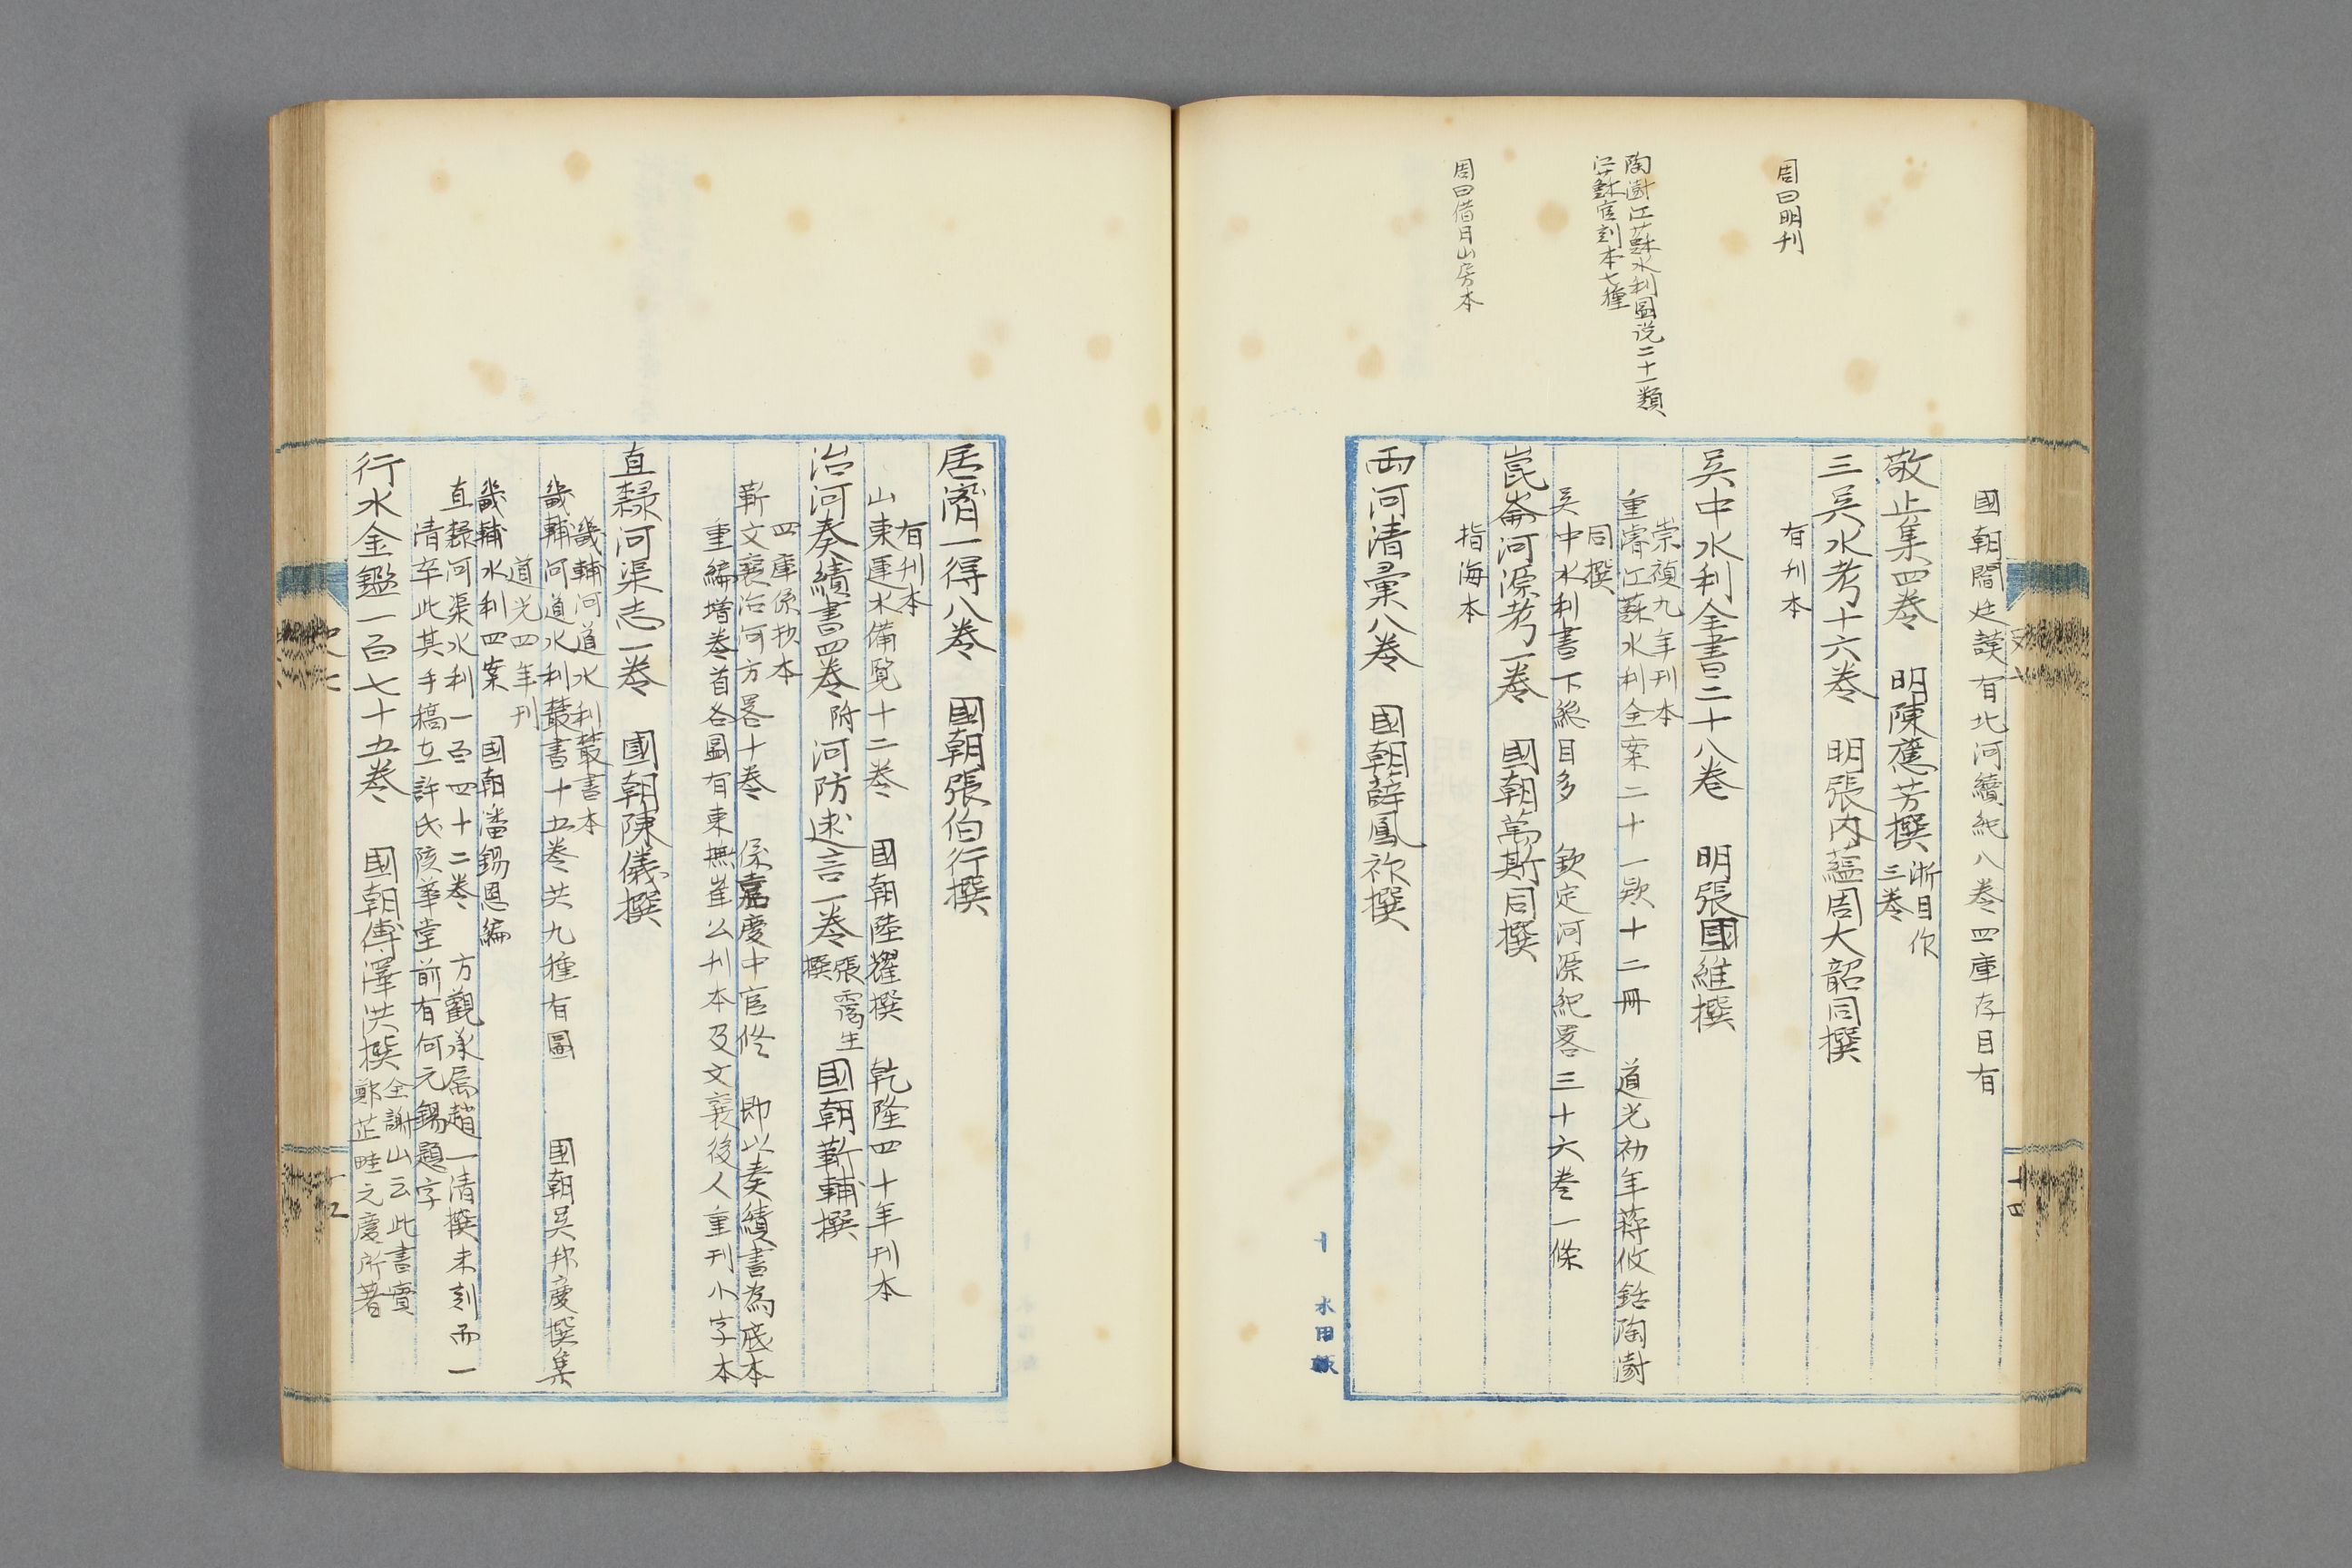 周曰明刊
陶澍江蘇水利圖說二十一類
江蘇官刻本七種
周曰借月山房本
國朝閻廷謨有北河續紀八卷四庫存目有
敬止集四卷 明陳應芳撰 浙目作
三卷
三吳水考十六卷 明張內蘊周大韶同撰
有刊本
吳中水利全書二十八卷 明張國維撰
崇禎九年刊本
重濬江蘇水利全案二十一款十二冊 道光初年蔣攸銛陶澍
同撰
吳中水利書下總目多 欽定河源紀畧三十六卷一條
崑崙河源考一卷 國朝萬斯同撰
指海本
兩河清彙八卷 國朝薛鳳祚撰
十 水田
居濟一得八卷 國朝張伯行撰
有刊本
山東運水備覽十二卷 國朝陸燿撰 乾隆四十年刊本
治河奏績書四卷附河防述言一卷 張靄生
撰 國朝靳輔撰
四庫係抄本
靳文襄治河方畧十卷 係嘉慶中官修 即以奏績書為底本
重編增卷首各圖有東撫崔公刊本及文襄後人重刊小字本
直隸河渠志一卷 國朝陳儀撰
畿輔河道水利叢書本
畿輔河道水利叢書十五卷共九種有圖 國朝吳邦慶撰集
道光四年刊
畿輔水利四案 國朝潘錫恩編
直隸河渠水利一百四十二卷 方觀承屬趙一清撰未刻而一
清卒此其手稿在許氏陔華堂前有何元錫題字
行水金鑑一百七十五卷 國朝傅澤洪撰 全謝山云此書實
鄭芷畦元慶所著